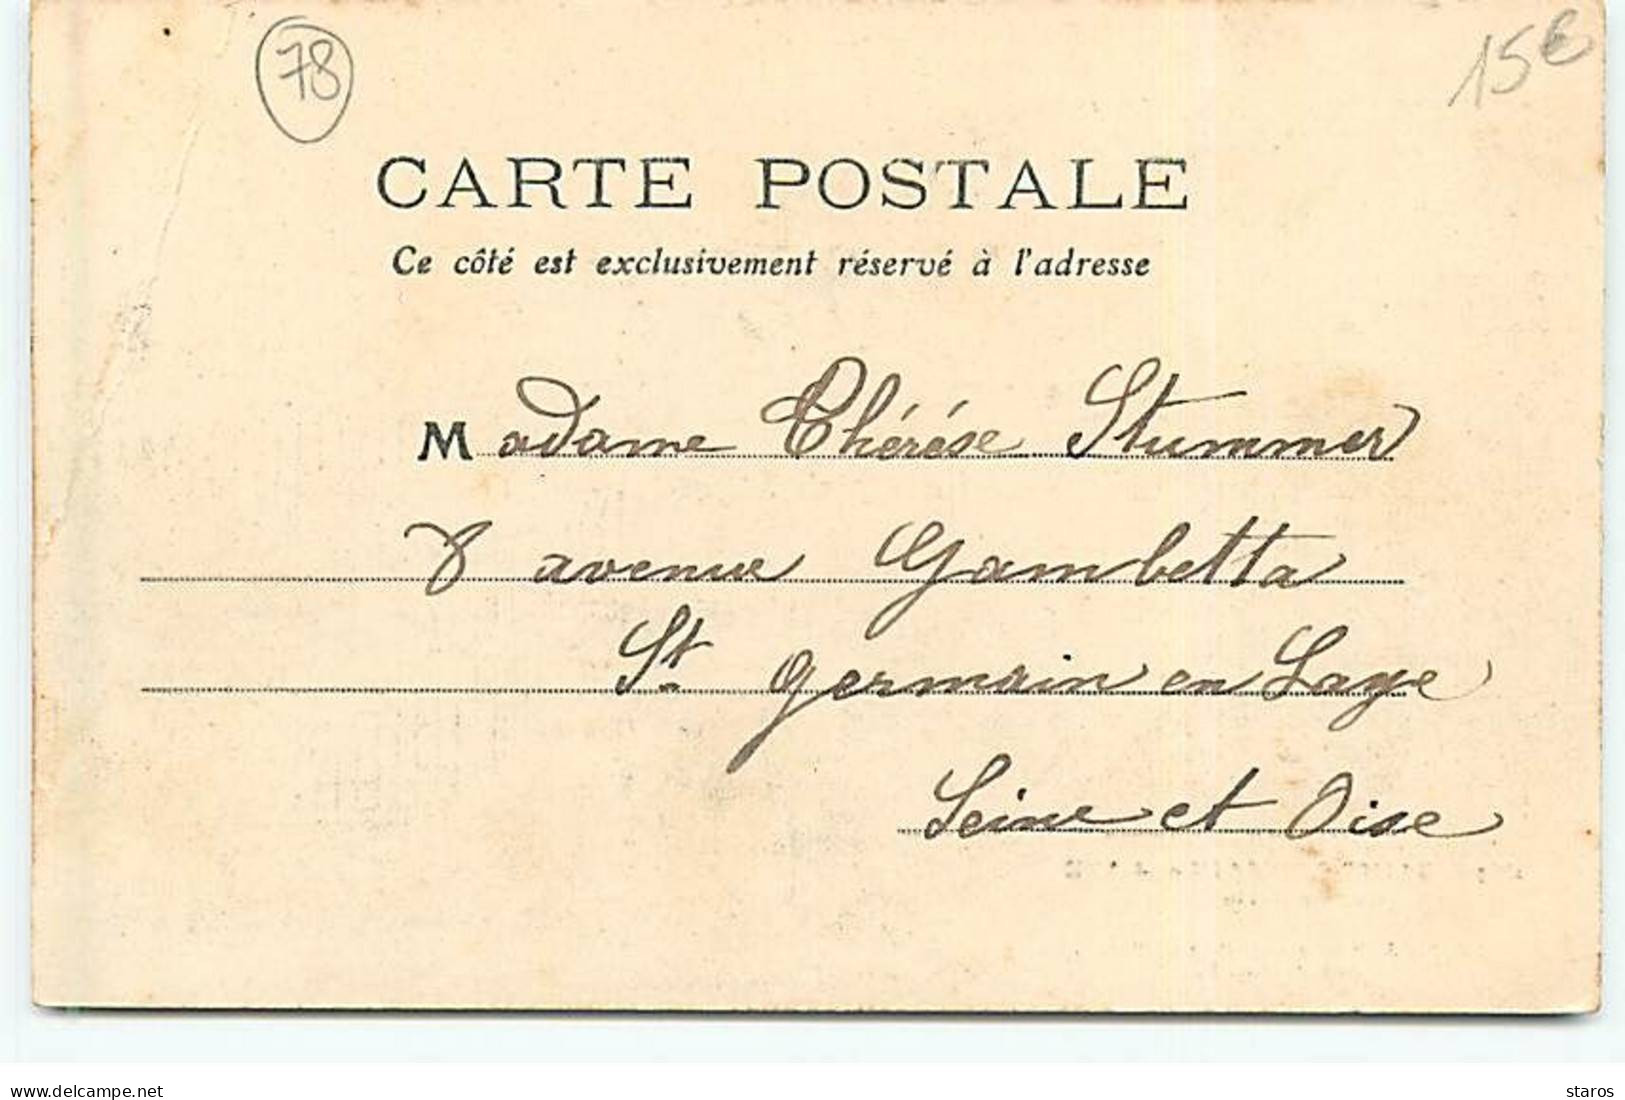 78
15€
CARTE POSTALE
Ce côté est exclusivement réservé à l'adresse
Madame Thérése Stummer
8 avenue Gambetta
St Germain en Laye
Seine et Oise
www.delcampe.net
staros